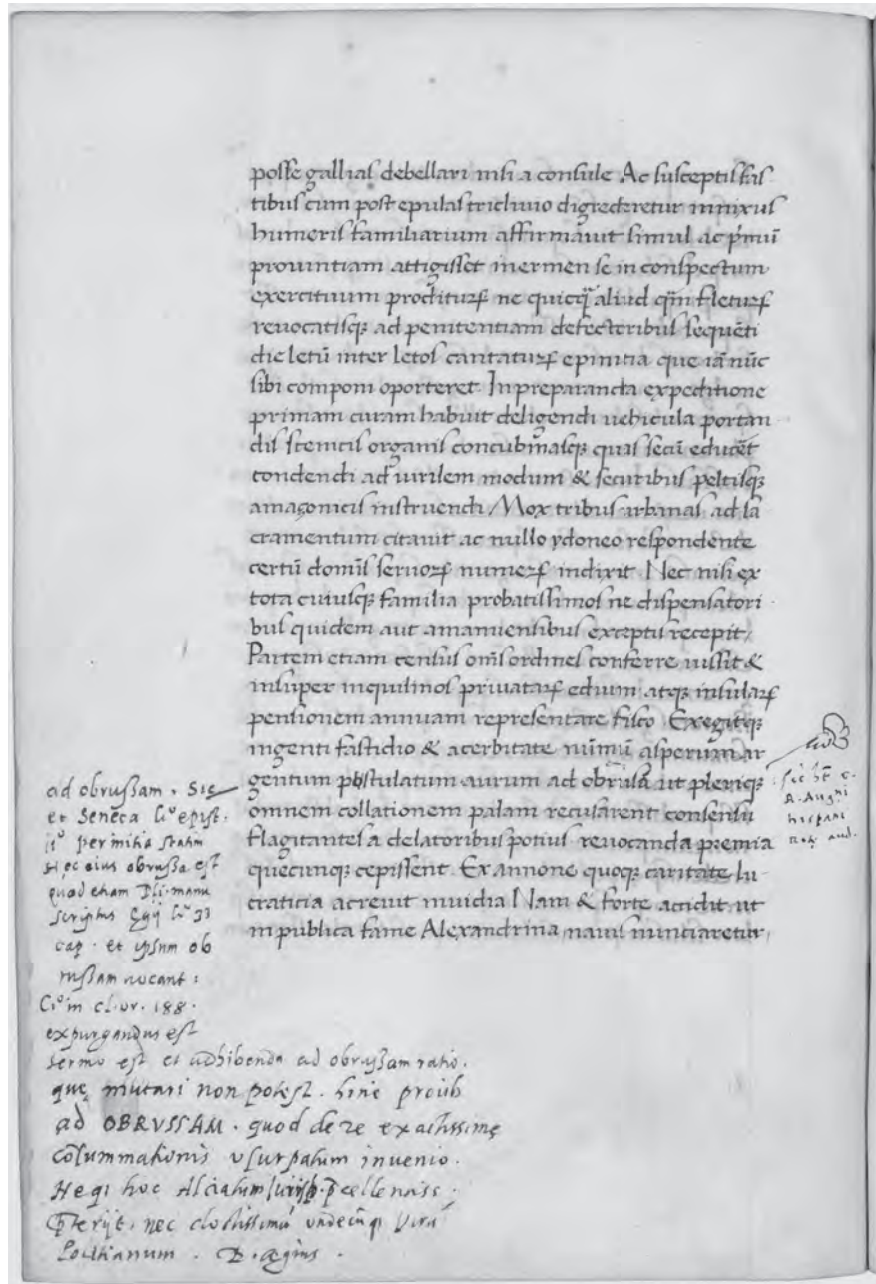 posse gallias debellari nisi a consule Ac susceptis fas
tibus cum post epulas triclinio digrederetur innixus
humeris familiarium affirmavit simul ac pⁱmū
provintiam attigisset inermen se in conspectum
exercituum proditurꝝ ne quicq̄ aliud qm̄ fleturꝝ
revocatisqꝫ ad penitentiam defectoribus sequēti
die letū inter letos cantaturꝝ epinitia que iā nūc
sibi componi oporteret. In preparanda expeditione
primam curam habuit deligendi vehicula portan
dis scenicis organis concubinasqꝫ quas secū educēt
tondendi ad uirilem modum & securibus peltisqꝫ
amaçonicis instruendi Mox tribus urbanas ad sa
cramentum citavit ac nullo ydoneo respondente
certū domīs servoꝝ numeꝝ indixit. Nec nisi ex
tota cuiusqꝫ familia probatissimos ne dispensatori
bus quidem aut amanuensibus exceptis recepit.
Partem etiam census om̄s ordines conferre iussit &
insuper inquilinos privataꝝ edium atqꝫ insulaꝝ
pensionem annuam representate fisco Exegitqꝫ
ingenti fastidio & acerbitate nūmū asperum ar
gentum postulatum aurum ad obrusā ut pleriqꝫ
omnem collationem palam recusarent consensu
flagitantes a delatoribus potius revocanda premia
quecunqꝫ cepissent. Ex annone quoqꝫ caritate lu
craticia acrevit invidia Nam & forte accidit ut
in publica fame Alexandrina navis nunciaretur
ad obrussam. Sic
et Seneca li° epist.
Hec eius obrussa est
quod etiam Pli. manu
scriptus
cap. et ipsum ob
russam vocant:
Ci° in cl. or. 188.
expurgandus est
sermo est et adhibenda ad obrussam ratio.
que mutari non potest. hinc proverb
ad OBRVSSAM. quod de re exactissime
cōsummationis usurpatum invenio.
Neqi hoc Alciatum
nec doctissimū undecūqi virū
. P. Ægius.
hispani